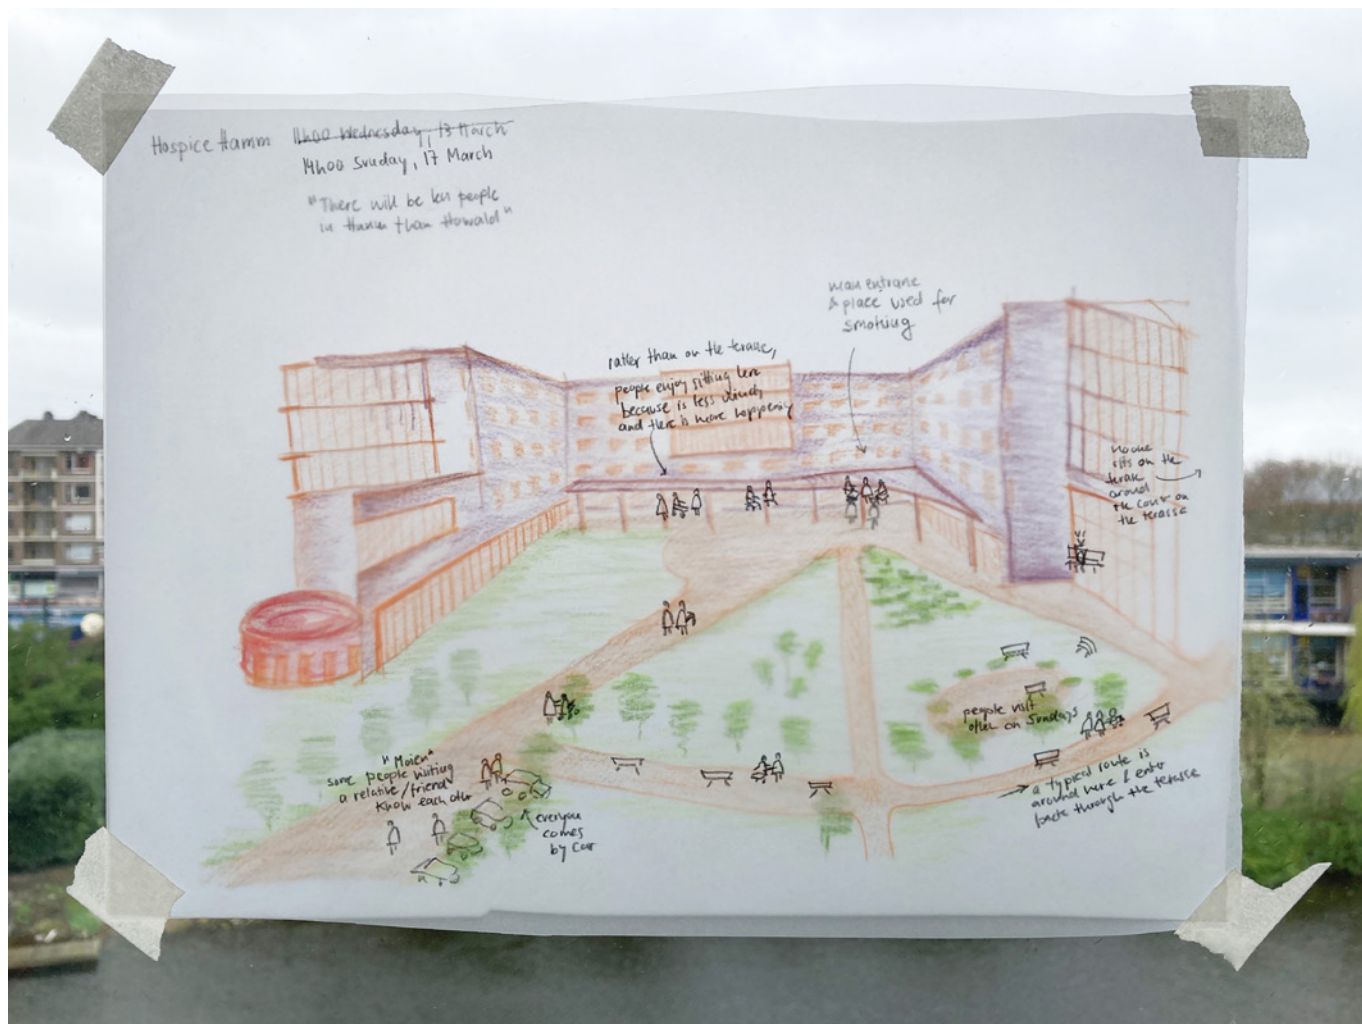 Hospice Hamm
11h00 Wednesday, 13 March
14h00 Sunday, 17 March
"There will be less people
in Hamm than Howald"
main entrane
& place used for
smoking
rather than on the terasse,
people enjoy sitting here
because is less windy
and there is more happening
no one
sits on the
terase
around
the court on
the terasse
people visit
often on Sundays
a typical route is
around here & enter
back through the terasse
"Moien"
some people visiting
a relative/friend
know each other
everyone
comes
by car